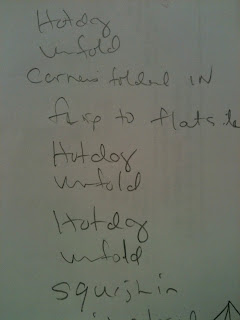 Hotdog
unfold
Corners folded IN
flip to flat
Hotdog
unfold
Hotdog
unfold
squish in